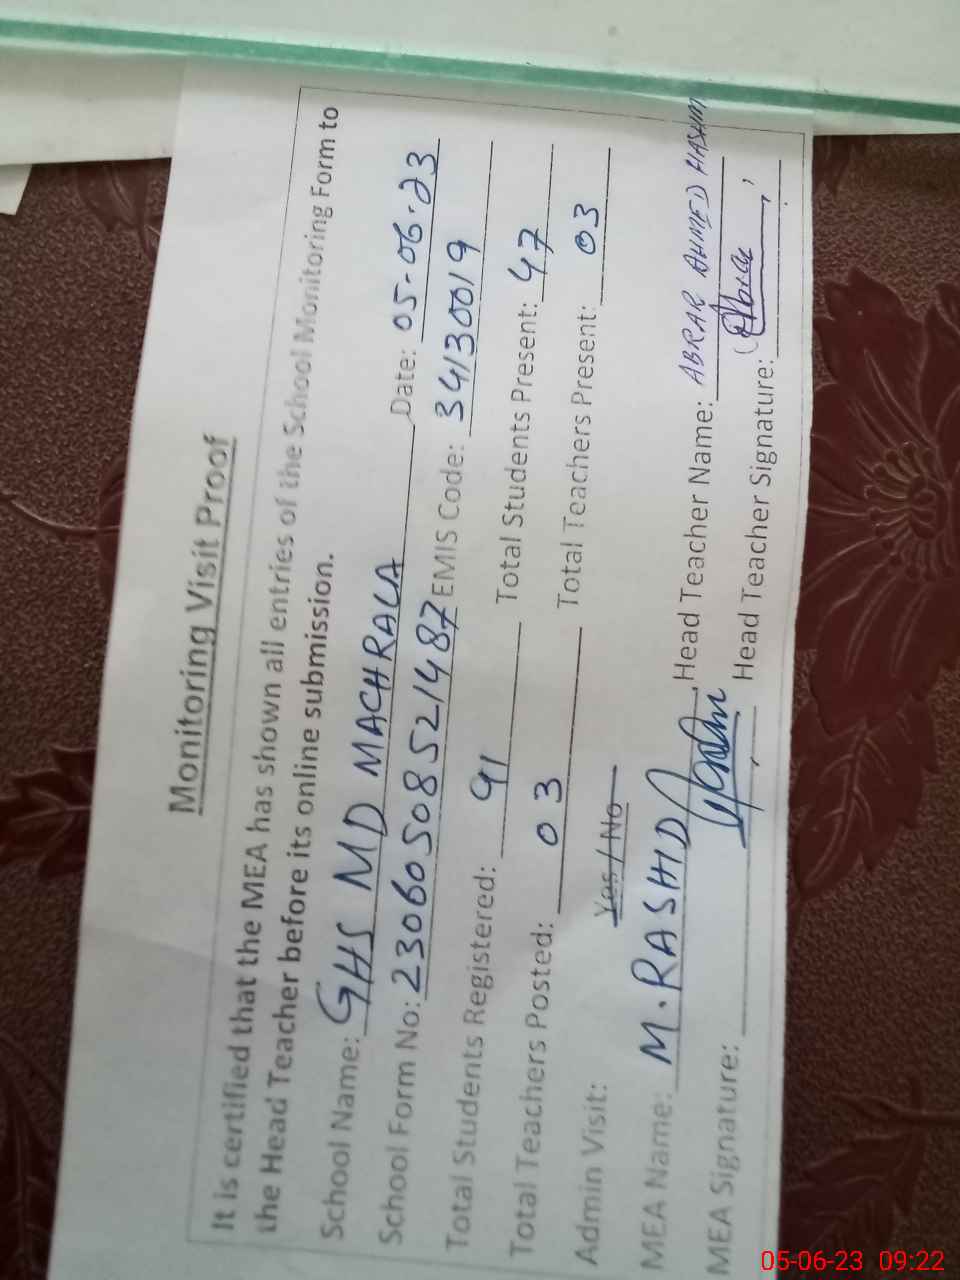 Monitoring Visit Proof
It is certified that the MEA has shown all entries of the School Monitoring Form to
the Head Teacher before its online submission.
School Name: GHS MD MACHRALA Date: 05-06-23
School Form No: 23060508521487 EMIS Code: 34130019
Total Students Registered: 91 Total Students Present: 47
Total Teachers Posted: 03 Total Teachers Present: 03
Admin Visit: Yes / No
MEA Name: M. RASHID Head Teacher Name: ABRAR AHMED HASHMI
MEA Signature: Head Teacher Signature:
05-06-23 09:22